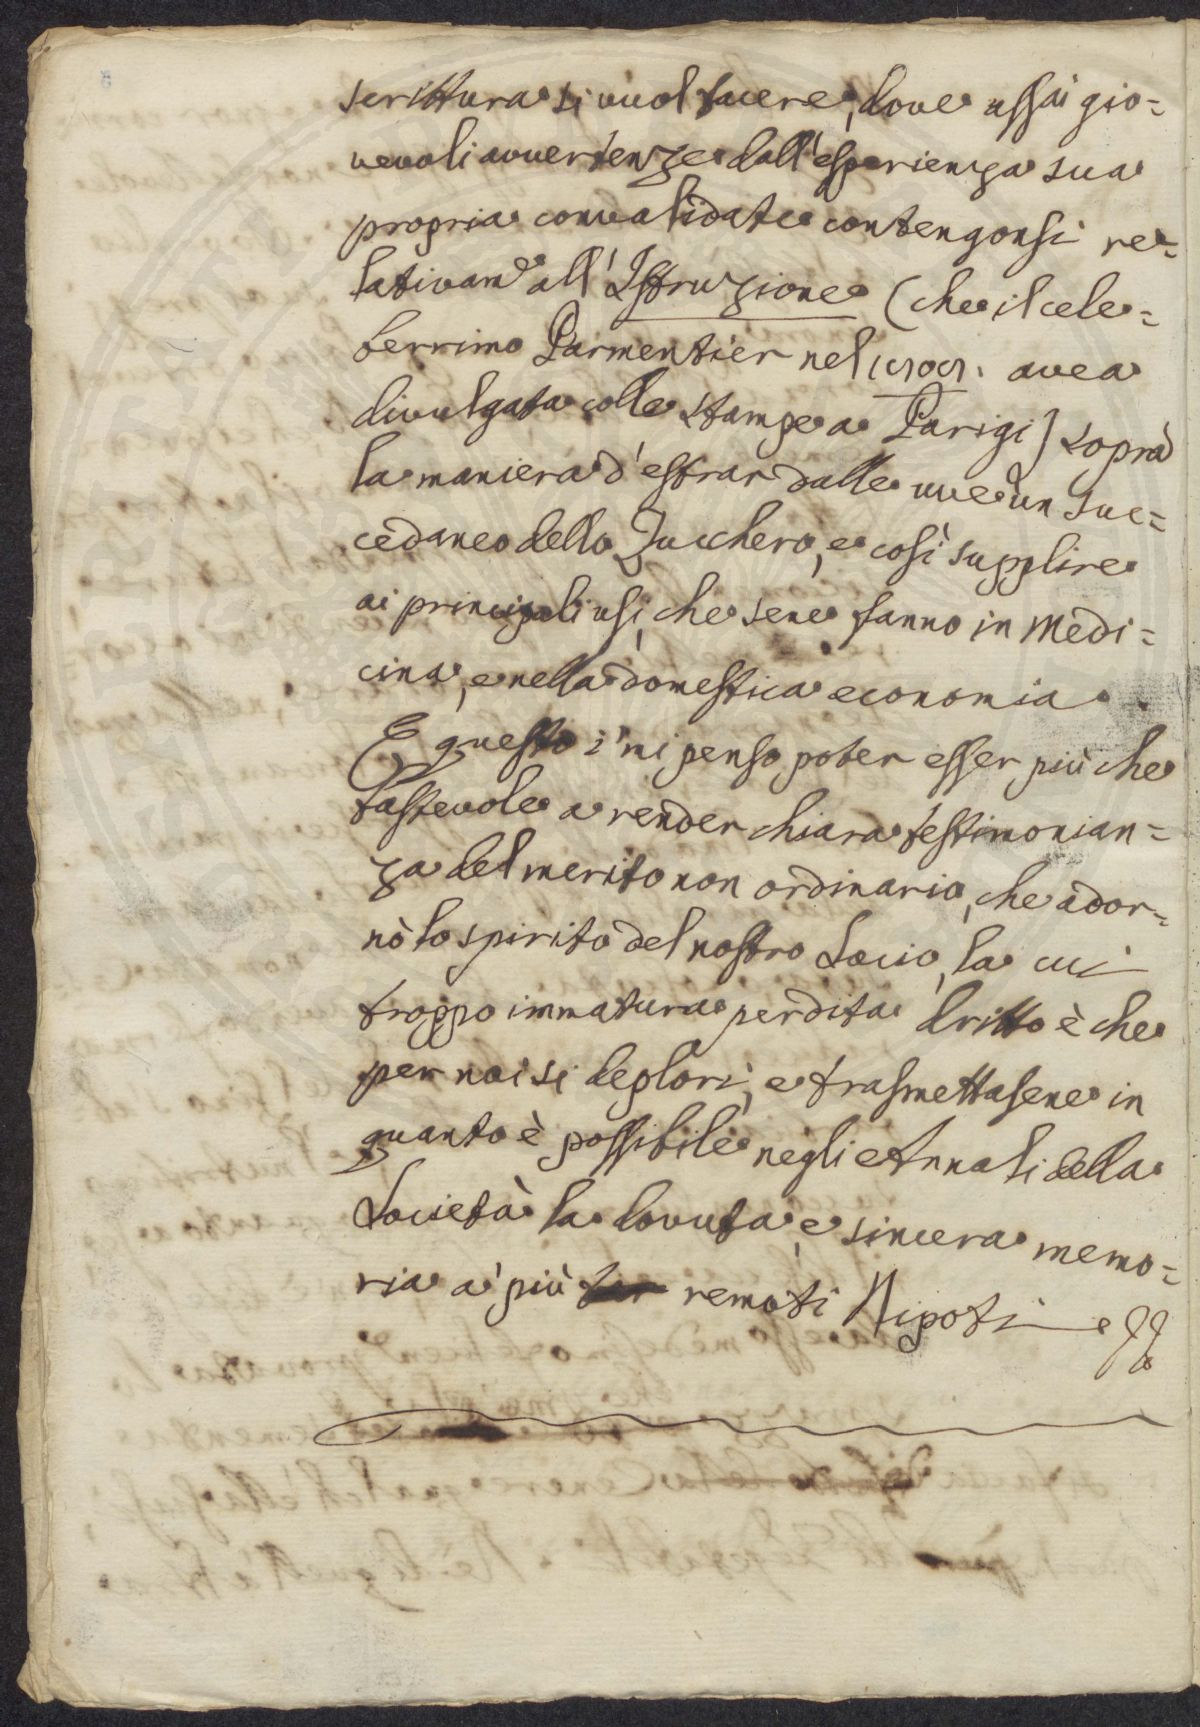 scrittura si vuol tacere, dove assai gio=
vevoli avvertenze dall'esperienza sua
propria convalidate contengonsi re=
lativam.e all'Istruzione (che il cele=
berrimo Parmentier nel avea
divulgata colle stampe a Parigi) sopra
la maniera d'estrar dalle uve un suc=
cedaneo dello Zucchero, e così supplire
ai principali usi, che sene fanno in Medi=
cina, e nella domestica economia.
E questo i' mi penso poter esser più che
bastevole a render chiara testimonian=
za del merito non ordinario, che ador=
nò lo spirito del nostro Socio, la cui
troppo immatura perdita dritto è che
per noi si deplori, e trasmettasene in
quanto è possibile negli Annali della
Società la dovuta, e sincera memo=
ria a' più remoti Nipoti